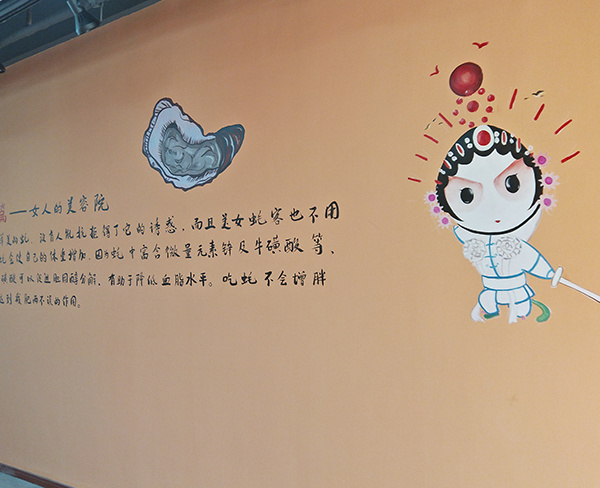 ——女人的美容院
美的蚝，没有人能抵挡得了它的诱惑，而且美女蚝客也不用
蚝会使自己的体重增加，因为蚝中富含微量元素锌及牛磺酸等，
磺酸可以促进胆固醇分解，有助于降低血脂水平。吃蚝不会增胖
到我肥而不腻的作用。